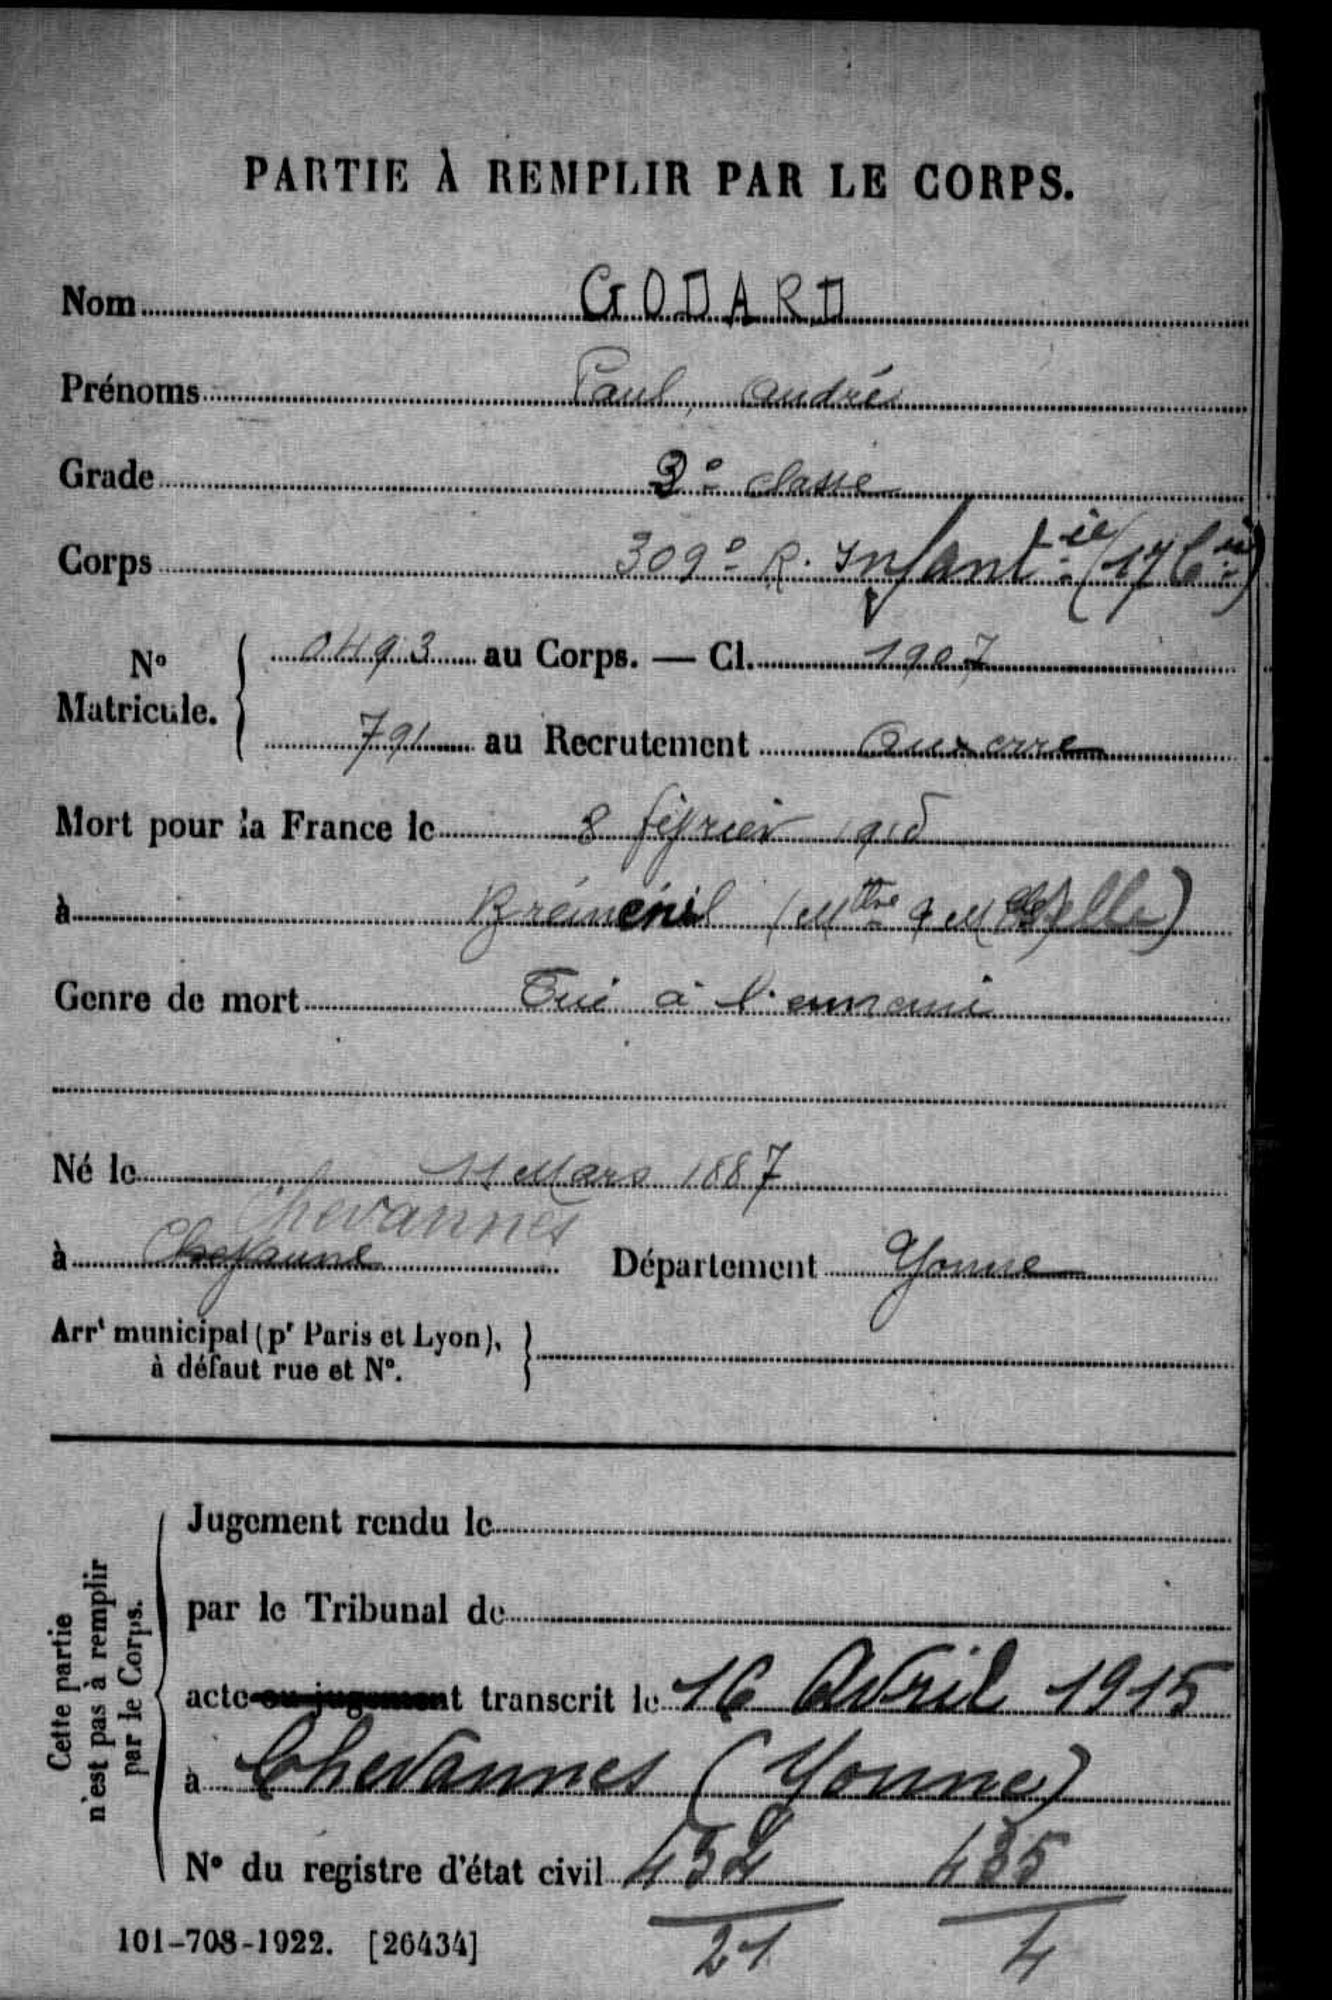 PARTIE À REMPLIR PAR LE CORPS.
Nom GODARD
Prénoms Paul, André
Grade 2e classe
Corps 309e R. Infantie (17 Cie)
No Matricule. { 0493 au Corps. — Cl. 1907
791 au Recrutement Auxerre
Mort pour la France le 8 février 1915
à Bréménil (Mthe & Mselle)
Genre de mort Tué à l'ennemi
Né le 11 Mars 1887
Chevannes
à Chevanne Département Yonne
Arrt municipal (pr Paris et Lyon),
à défaut rue et No.
Cette partie
n'est pas à remplir
par le Corps.
Jugement rendu le
par le Tribunal de
acte ou jugement transcrit le 16 Avril 1915
à Chevannes (Yonne)
No du registre d'état civil 435
21 4
101-708-1922. [26434]